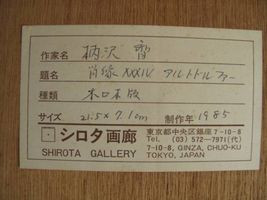 作家名 柄沢 齊
題名 肖像 XXXIV アルトドルファー
種類 木口木版
サイズ 21.5×7.10m 制作年 1985
シロタ画廊 東京都中央区銀座7-10-8
Tel. (03) 572-7971(代)
SHIROTA GALLERY 7-10-8, GINZA, CHUO-KU
TOKYO, JAPAN